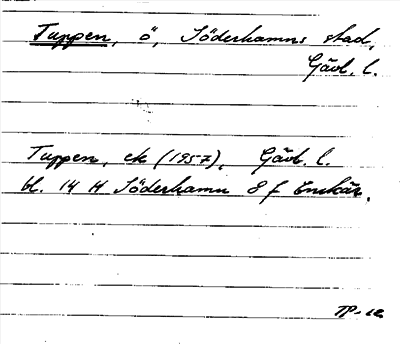 Tuppen, ö, Söderhamns stad,
Gävl. l.
Tuppen, ek (1957), Gävl. l.
bl. 14 H Söderhamn 8 f Enskär.